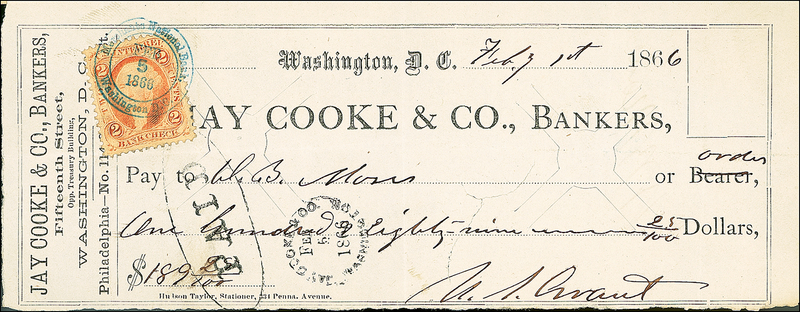 JAY COOKE & CO., BANKERS,
Fifteenth Street,
Opp. Treasury Building,
WASHINGTON, D. C.
Philadelphia—No. 114
INTER. REV.
2 2
BANK CHECK
National Bank
5
1866
Washington
Washington, D. C. Feb'y 1st 1866
JAY COOKE & CO., BANKERS,
Pay to W. B. Moses or order Bearer,
One hundred & Eighty-nine 25/100 Dollars,
$189 25/100
U. S. Grant
JAY COOKE & CO.
FEB
5
1866
WASHINGTON
PAID
Hudson Taylor, Stationer, 334 Penna. Avenue.